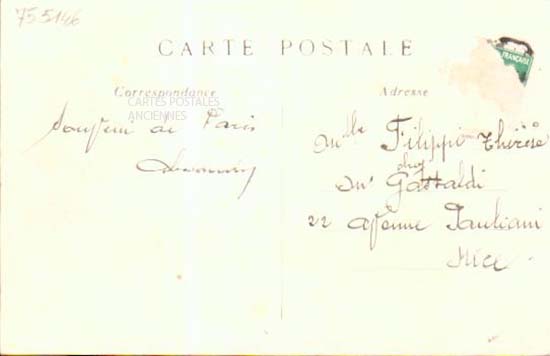 755146
CARTE POSTALE
FRANÇAISE
Correspondance
CARTES POSTALES
ANCIENNES
Adresse
Souvenir de Paris
Mlle Filippi Thérèse
chez
Mr Gastaldi
22 avenue Pauliani
Nice